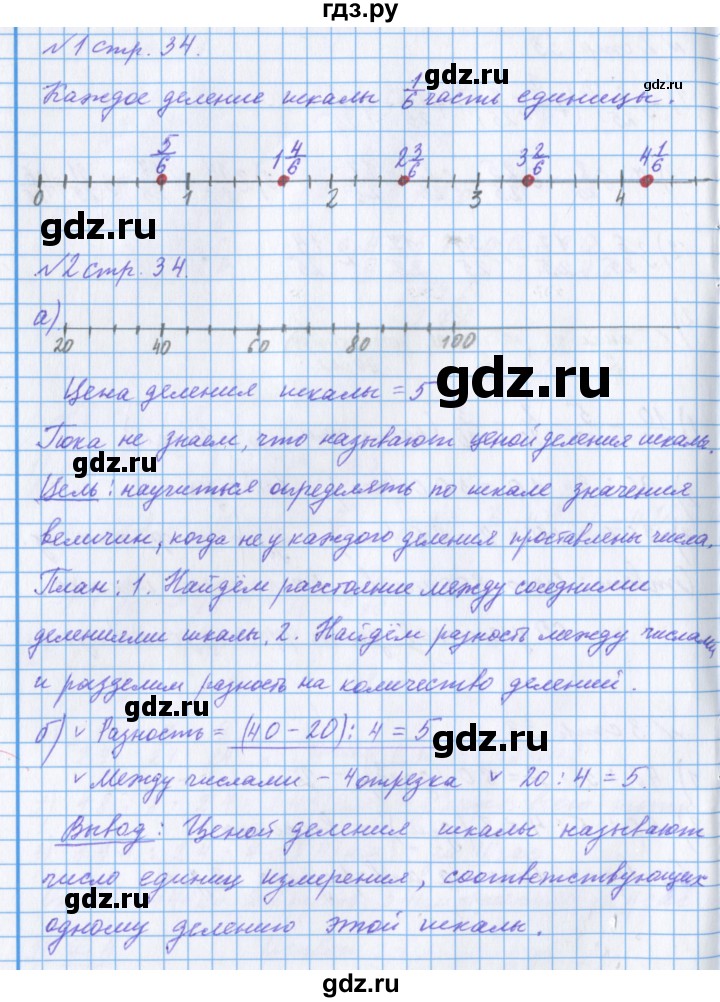 гдз.ру
№1 стр. 34.
gdz.ru
gdz.ru
Каждое деление шкалы 1/6 часть единицы.
5/6 1 4/6 2 3/6 3 2/6 4 1/6
0 1 2 3 4
gdz.ru
gdz.ru
№2 стр. 34.
а)
20 40 60 80 100
gdz.ru
Цена деления шкалы = 5
gdz.ru
Пока не знаем, что называют ценой деления шкалы.
gdz.ru
Цель: научиться определять по шкале значения
величин, когда не у каждого деления проставлены числа.
gdz.ru
План: 1. Найдём расстояние между соседними
делениями шкалы. 2. Найдём разность между числами
и разделим разность на количество делений.
gdz.ru
б) v Разность = (40 - 20) : 4 = 5
gdz.ru
v Между числами - 4 отрезка v 20 : 4 = 5.
Вывод: Ценой деления шкалы называют
число единиц измерения, соответствующих
gdz.ru
gdz.ru
одному делению этой шкалы.
gdz.ru
gdz.ru